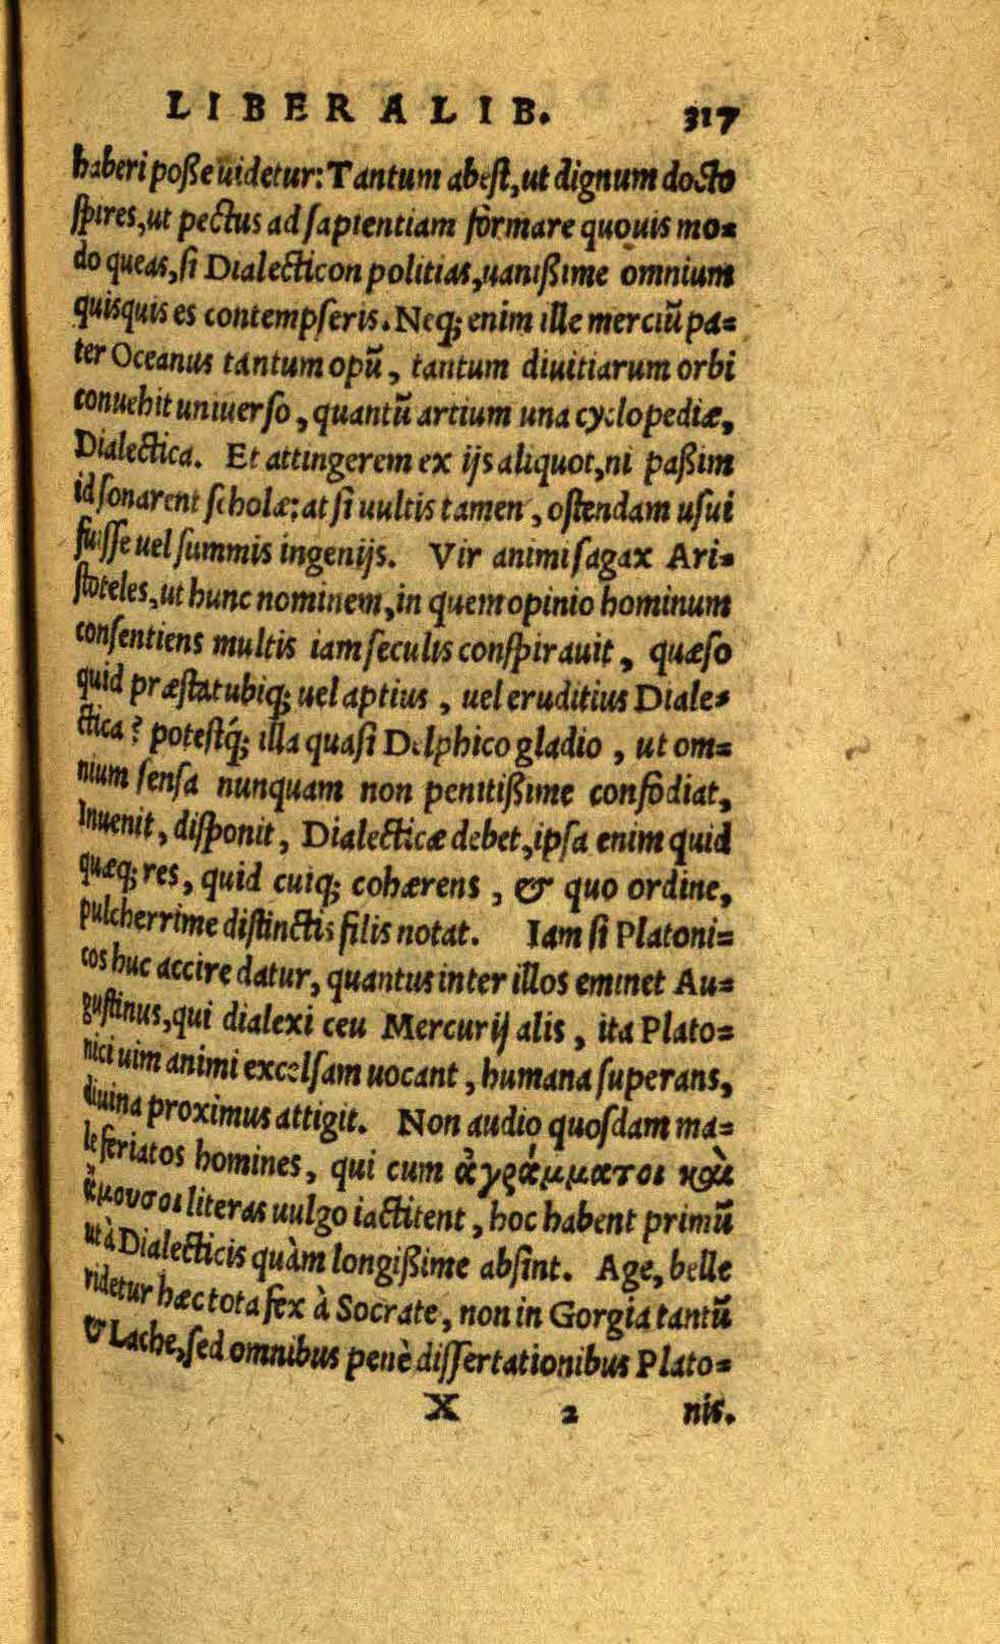 LIBERALIB. 317
haberi poße uidetur: Tantum abest, ut dignum docto
spires, ut pectus ad sapientiam formare quouis mo=
do queas, si Dialecticon politias, uanißime omnium
quisquis es contempseris. Neq; enim ille merciũ pa=
ter Oceanus tantum opũ, tantum diuitiarum orbi
conuehit uniuerso, quantũ artium una cyclopediæ,
Dialectica. Et attingerem ex ijs aliquot, ni paßim
id sonarent scholæ: at si uultis tamen, ostendam usui
fuisse uel summis ingenijs. Vir animi sagax Ari=
stoteles, ut hunc nominem, in quem opinio hominum
consentiens multis iam seculis conspirauit, quæso
quid præstat ubiq; uel aptius, uel eruditius Diale=
ctica? potestq́; illa quasi Delphico gladio, ut om=
nium sensa nunquam non penitißime confodiat,
Inuenit, disponit, Dialecticæ debet, ipsa enim quid
quæq; res, quid cuiq; cohærens, & quo ordine,
pulcherrime distinctis filis notat. Iam si Platoni=
cos huc accire datur, quantus inter illos eminet Au=
gustinus, qui dialexi ceu Mercurij alis, ita Plato=
nici uim animi excelsam uocant, humana superans,
diuina proximus attigit. Non audio quosdam ma=
le feriatos homines, qui cum ἀγράμματοι καὶ
ἄμουσοι literas uulgo iactitent, hoc habent primũ
ut à Dialecticis quàm longißime absint. Age, belle
ridetur hæc tota fex à Socrate, non in Gorgia tantũ
& Lache, sed omnibus penè dissertationibus Plato=
X 2 nis.